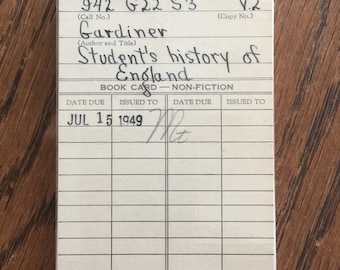 942 G22 S3 V.2
(Call No.) (Copy No.)
Gardiner
(Author and Title)
Student's history of
England
BOOK CARD — NON-FICTION
DATE DUE ISSUED TO DATE DUE ISSUED TO
JUL 15 1949 Mt